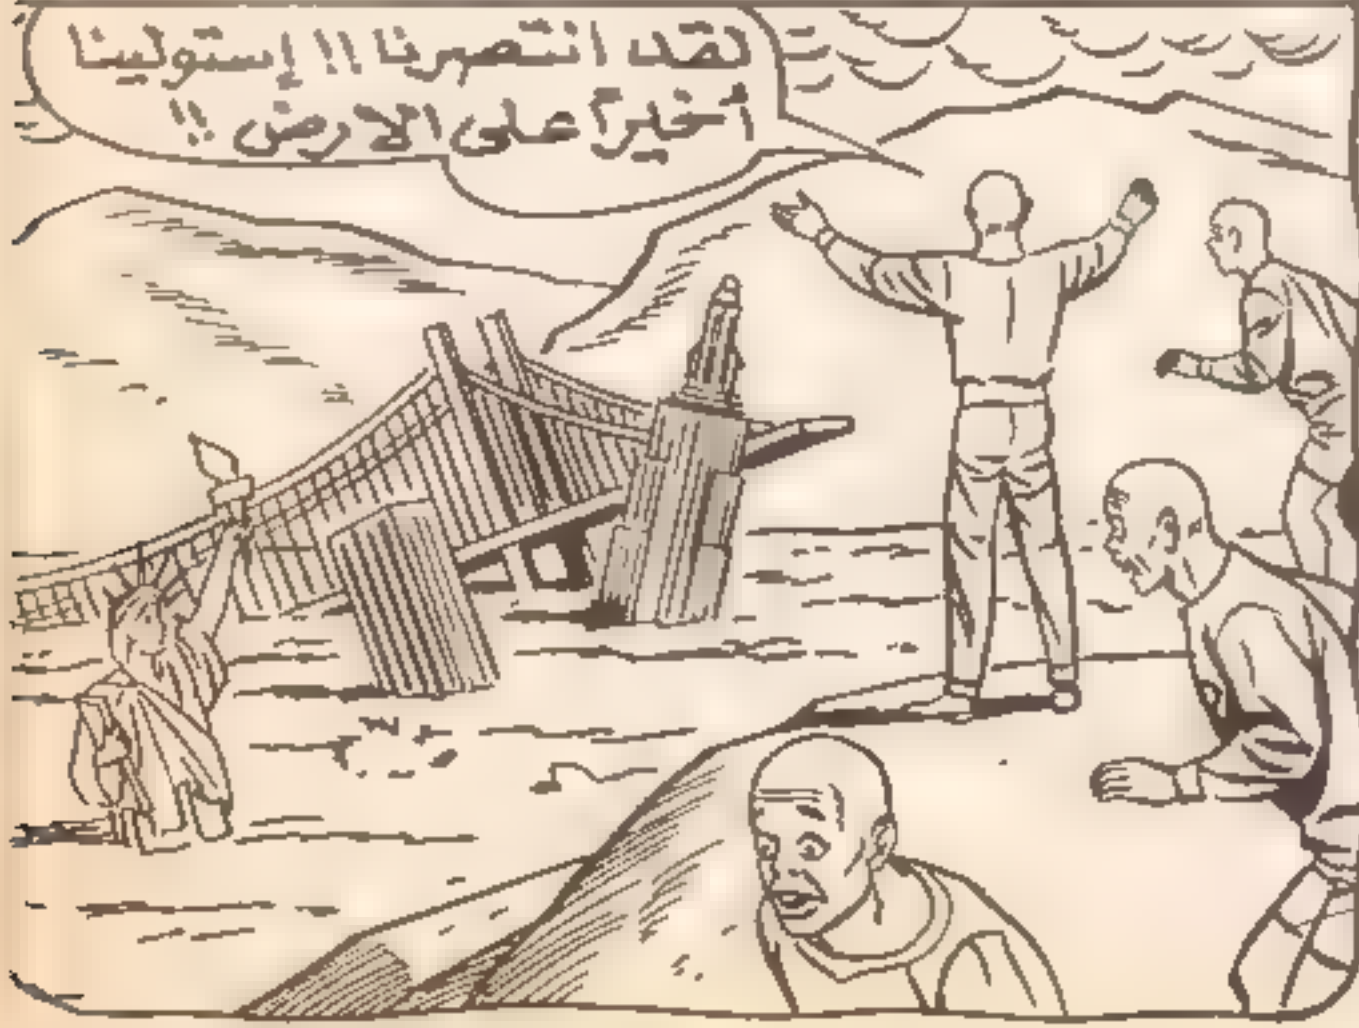 لقد انتصرنا !! إستولينا
أخيراً على الارض !!